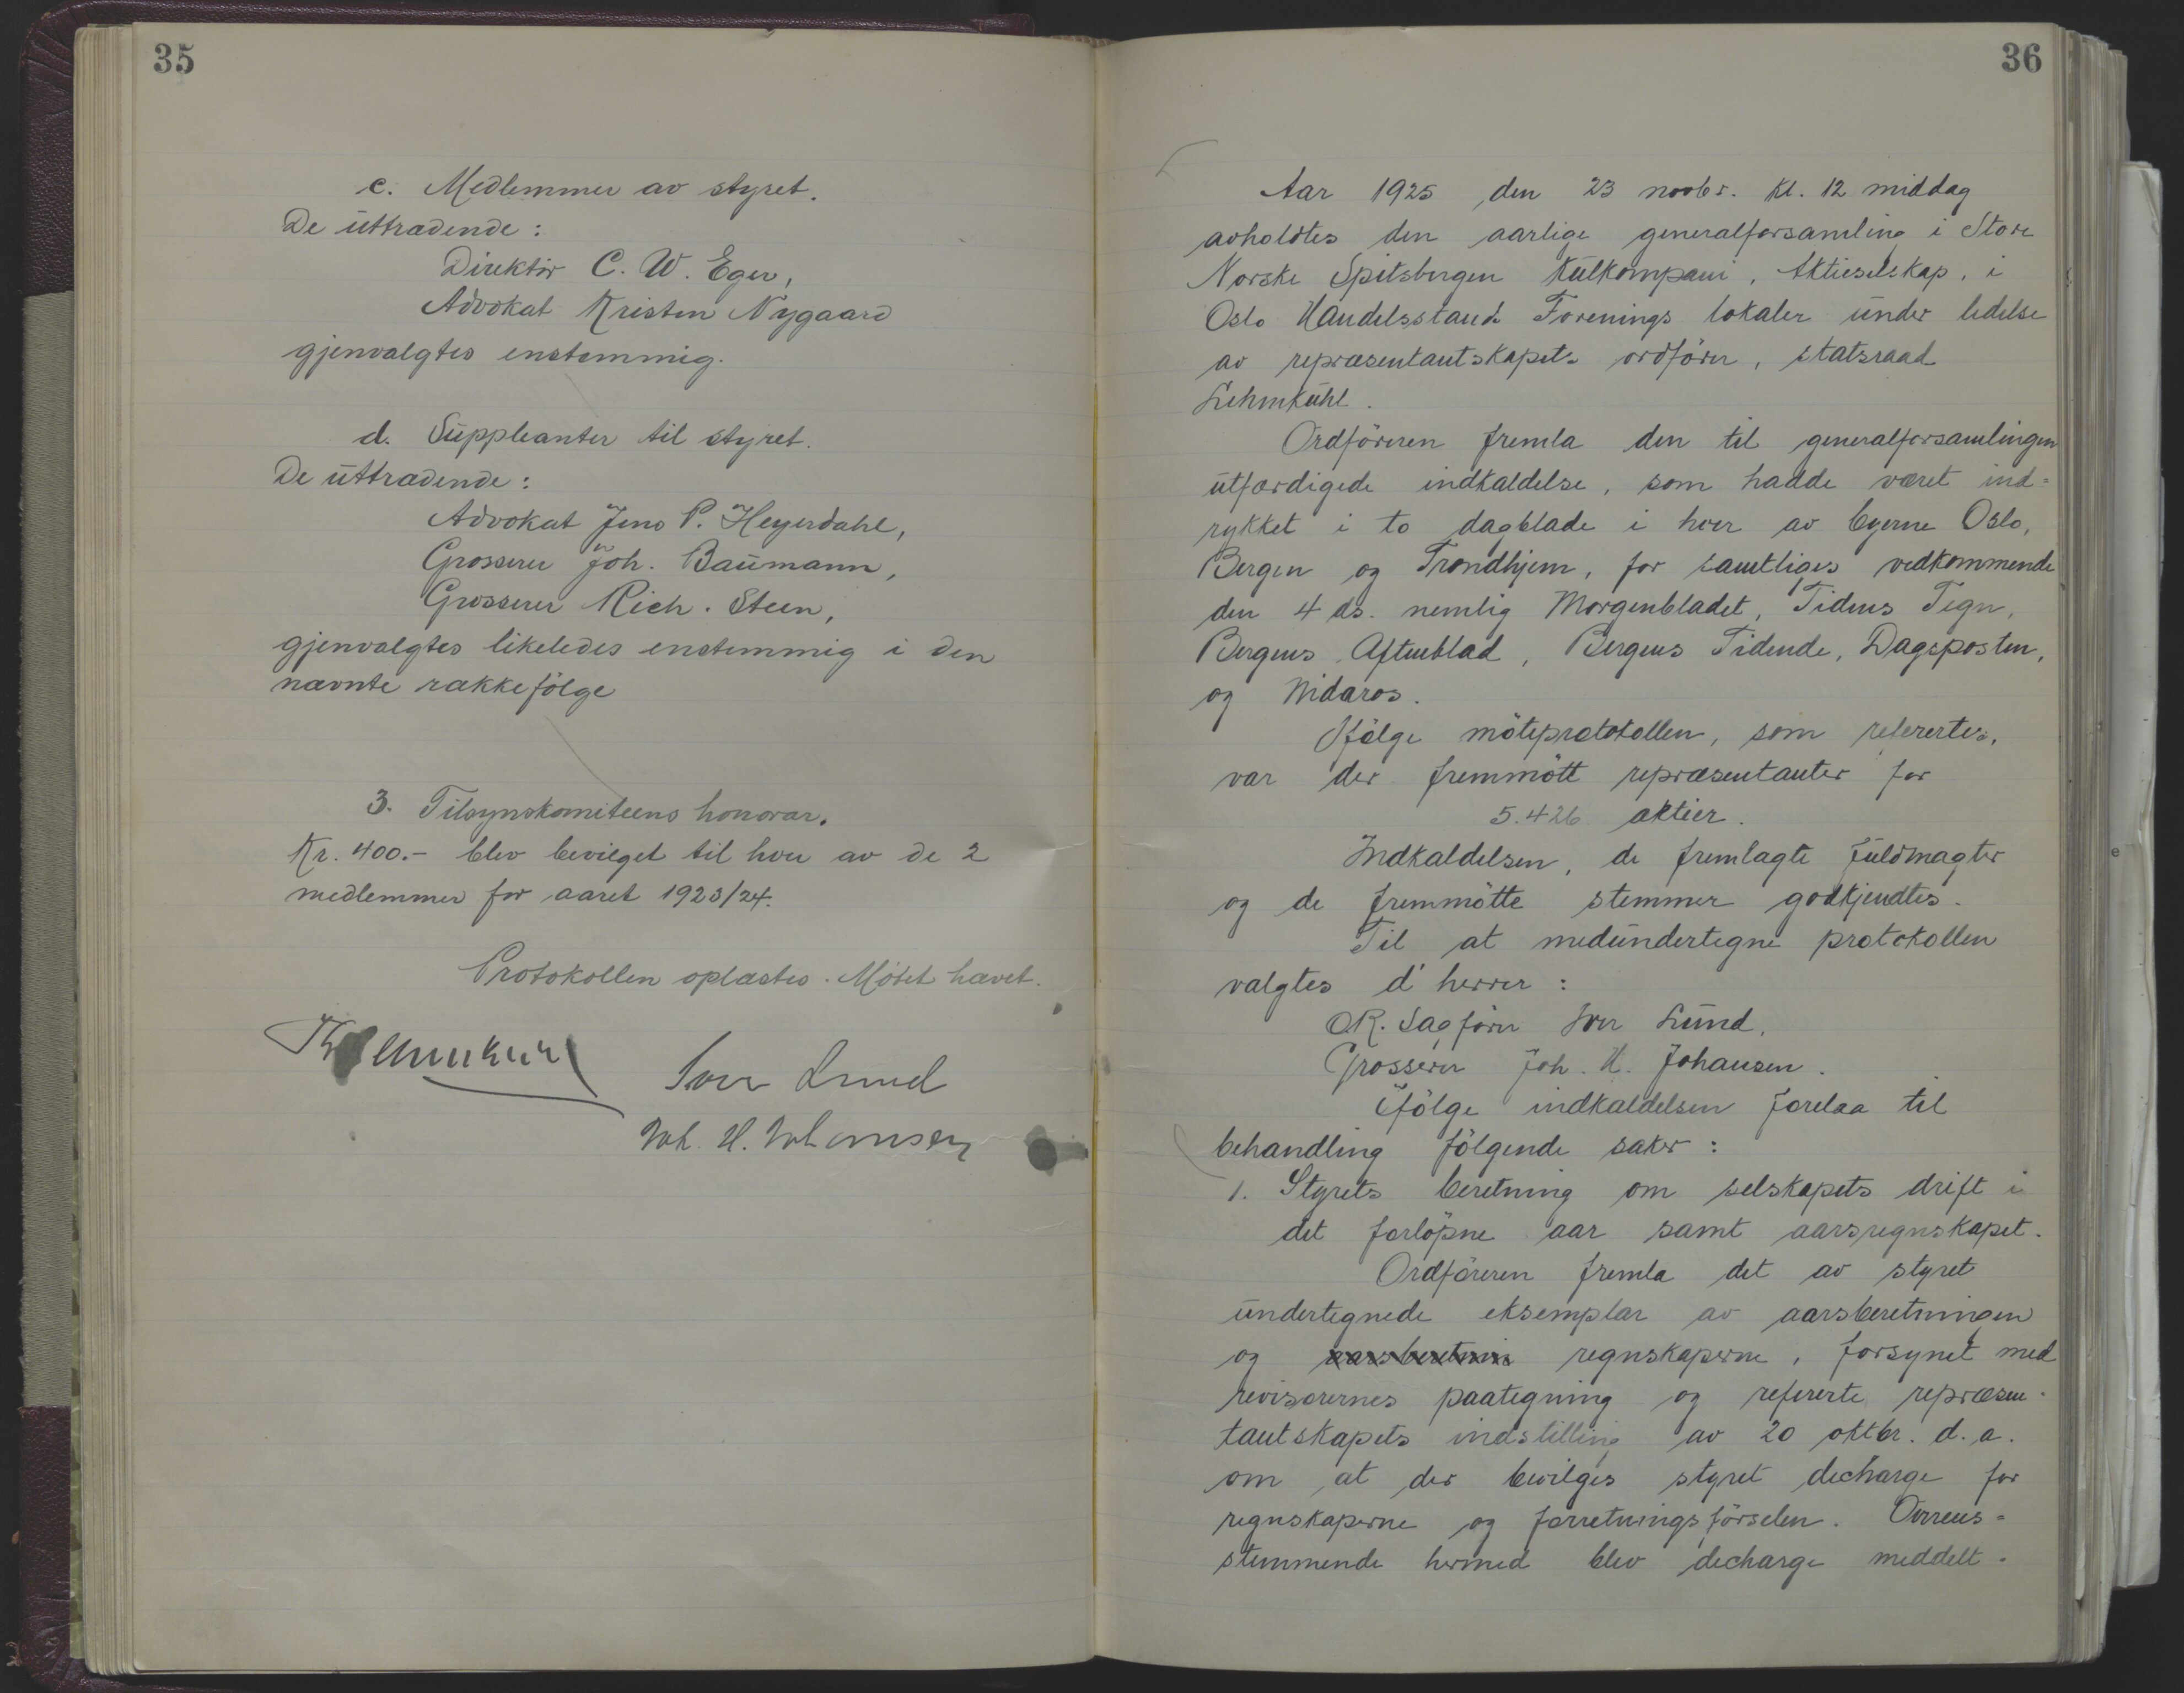 35
c. Medlemmer av styret.
De uttrædende:
Direktör C. W. Eger,
Advokat Kristen Nygaard
gjenvalgtes enstemmig.
d. Suppleanter til styret.
De uttrædende:
Advokat Jens P. Heyerdahl,
Grosserer Joh. Baumann,
Grosserer Rich. Steen,
gjenvalgtes likeledes enstemmig i den
nævnte rækkefölge
3. Tilsynskomiteens honorar.
Kr. 400.- blev bevilget til hver av de 2
medlemmer for aaret 1923/24.
Protokollen oplæstes. Mötet hævet.
Iver Lund
Joh. H. Johansen
36
Aar 1925 den 23 novbr. kl. 12 middag
avholdtes den aarlige generalforsamling i Store
Norske Spitsbergen Kulkompani, Aktieselskap, i
Oslo Handelsstands Forenings lokaler under ledelse
av repræsentantskapets ordförer, statsraad
Lehmkuhl.
Ordföreren fremla den til generalforsamlingen
utfærdigede indkaldelse, som hadde været ind=
rykket i to dagblade i hver av byerne Oslo,
Bergen og Trondhjem, for samtliges vedkommende
den 4 ds. nemlig Morgenbladet, Tidens Tegn,
Bergens Aftenblad, Bergens Tidende, Dagsposten,
og Nidaros.
Ifölge möteprotokollen, som referertes,
var der fremmött repræsentanter for
5.426 aktier.
Indkaldelsen, de fremlagte fuldmagter
og de fremmötte stemmer godkjendtes.
Til at medundertegne protokollen
valgtes d' herrer:
O.R. Sagförer Iver Lund,
Grosserer Joh. H. Johansen.
Ifölge indkaldelsen forelaa til
behandling fölgende saker:
1. Styrets beretning om selskapets drift i
det forlöpne aar samt aarsregnskapet.
Ordföreren fremla det av styret
undertegnede eksemplar av aarsberetningen
og aarsberetnin regnskaperne, forsynet med
revisorernes paategning og refererte repræsen-
tantskapets indstilling av 20 oktbr. d. a.
om at der bevilges styret decharge for
regnskaperne og forretningsförselen. Overens=
stemmende hermed blev decharge meddelt.